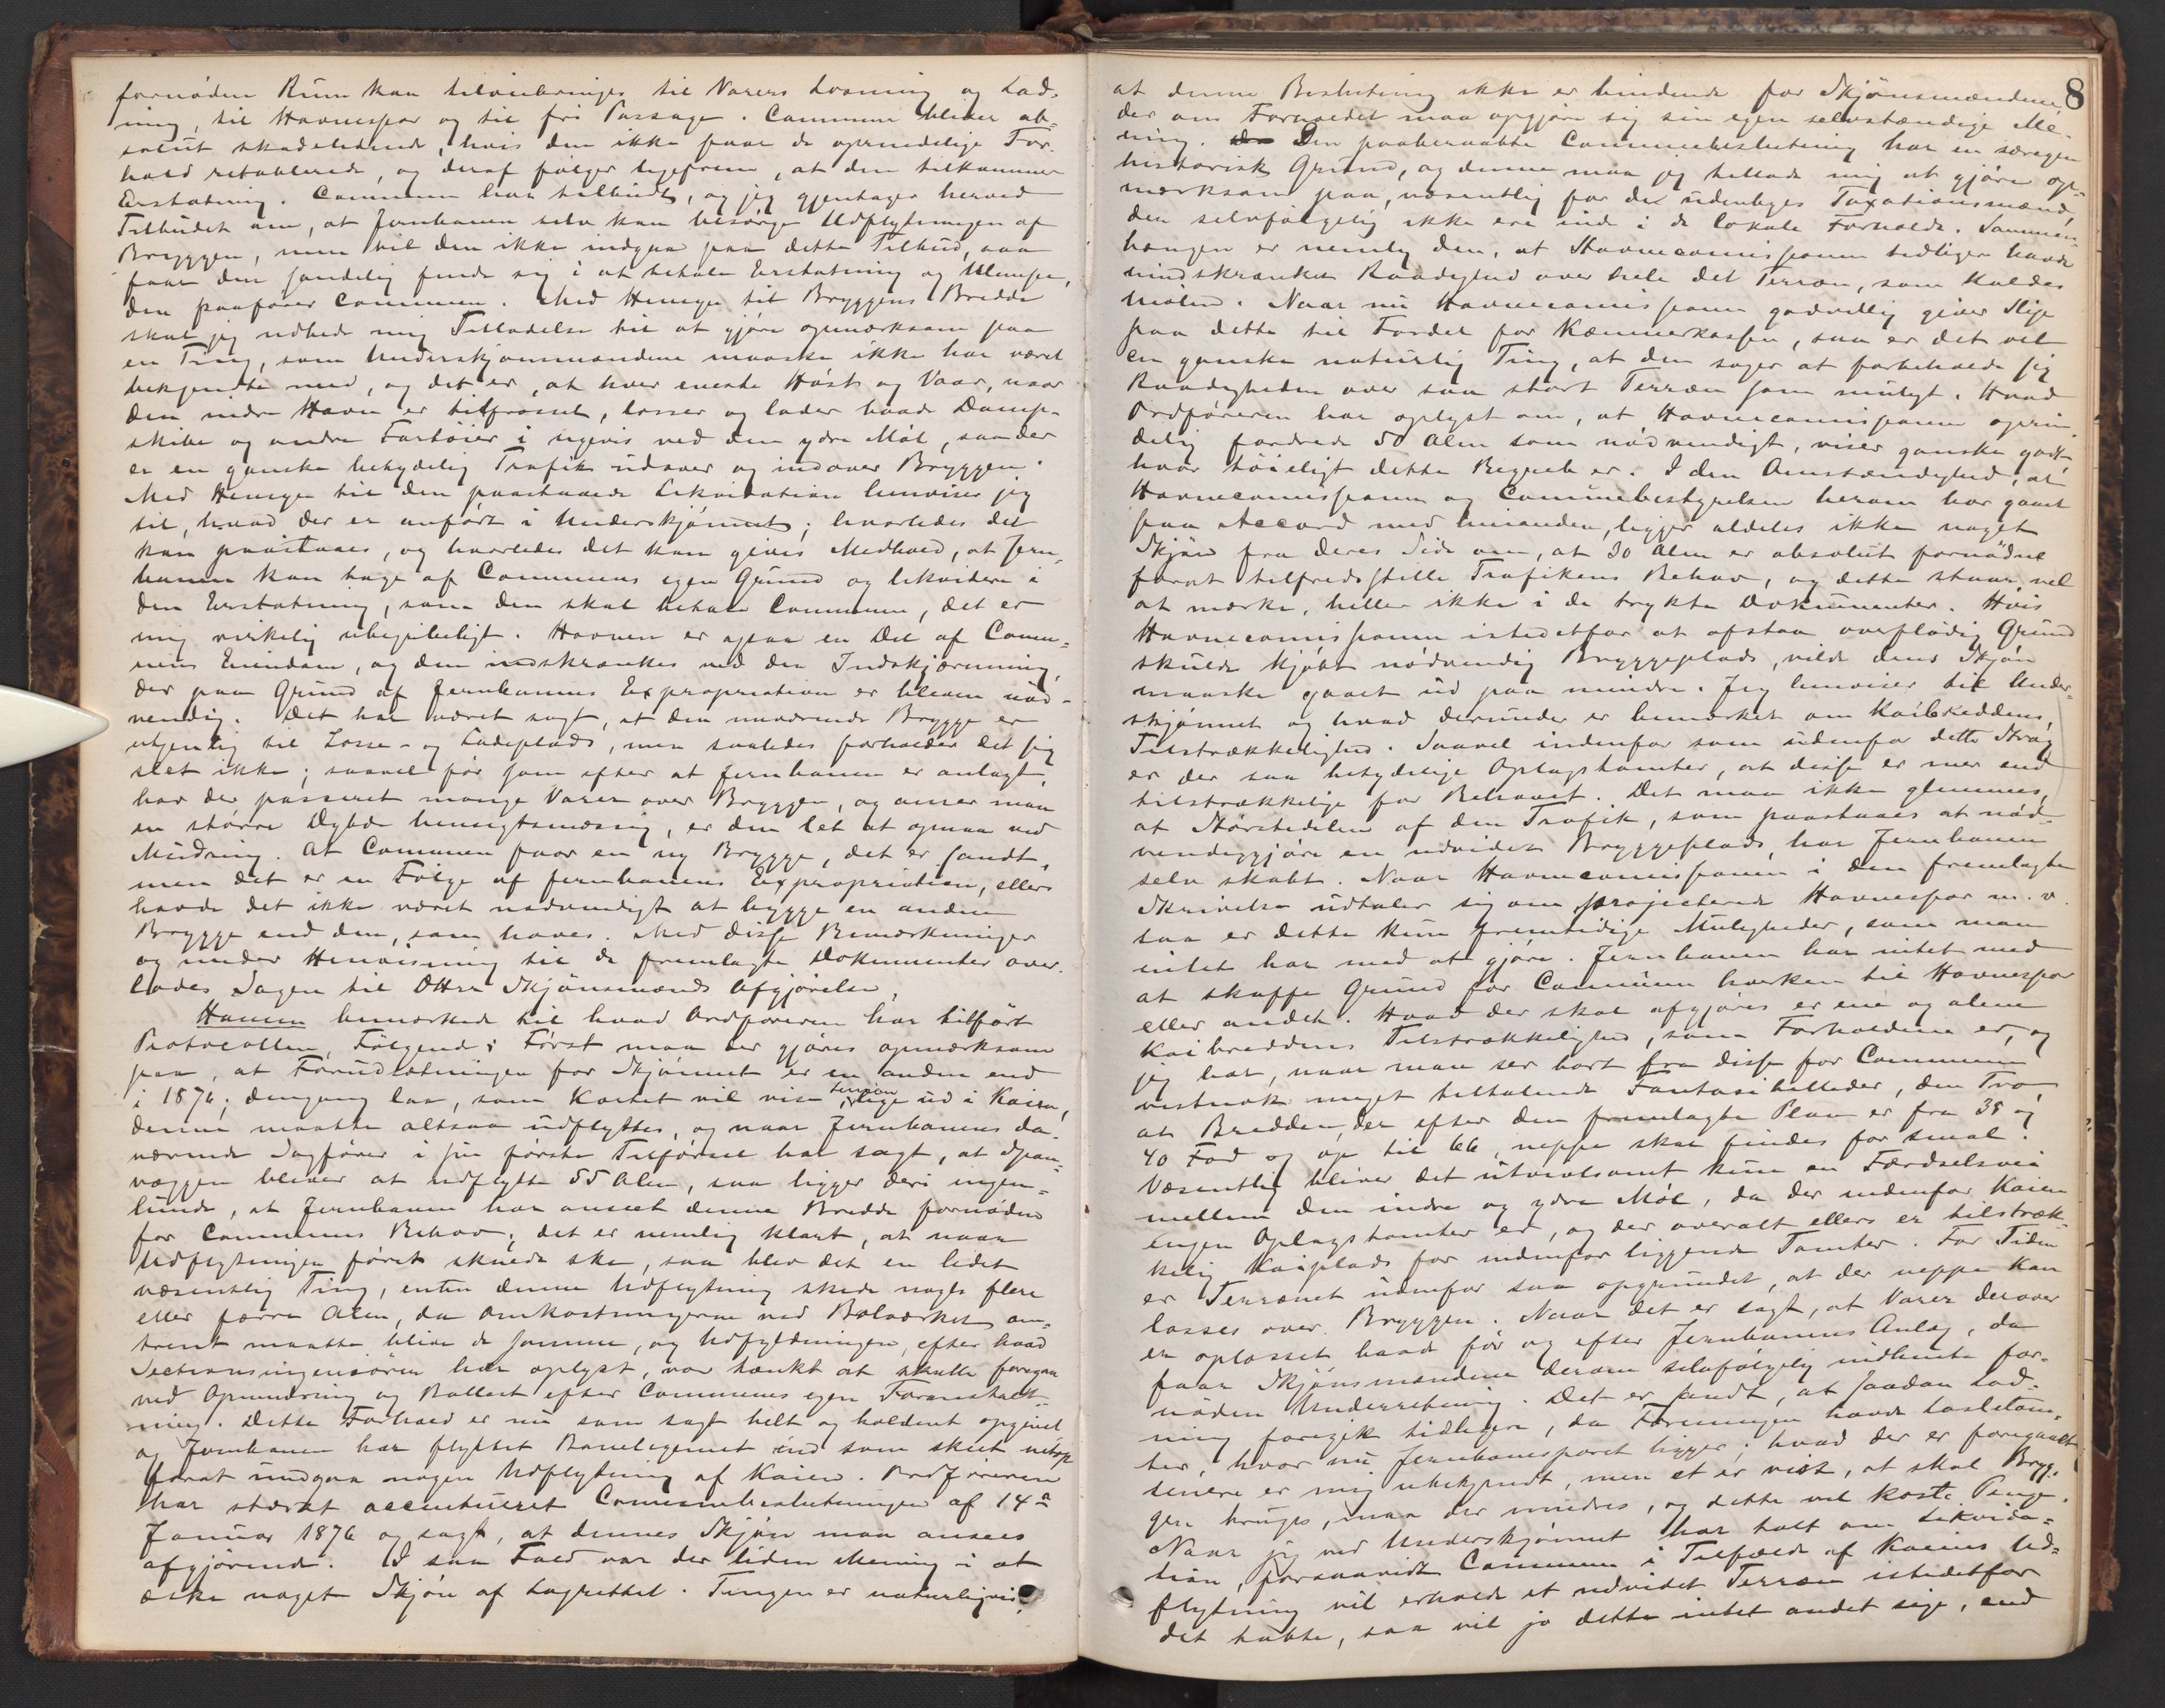 fornöden Rum kan tilveiebringes til Varers Losning og Lad-
ning, til Havnespor og til fri Passage. Communen bliver ab-
solut skadelidende, hvis den ikke faar de oprindelige For-
hold retablerede, og deraf følger ligefrem, at den tilkommer
Erstatning. Communen har tilbudt, og jeg gjentager herved
Tilbudet om, at Jernbanen selv kan besörge Udflytningen af
Bryggen, men vil den ikke indgaa paa dette Tilbud, saa
faar den sandelig finde sig i at betale Erstatning og Ulempe,
den paaförer Communen. Med Hensyn til Bryggens Bredde
skal jeg udbede mig Tilladelse til at gjöre opmærksom paa
en Ting, som Underskjönsmændene maaske ikke har været
bekjendte med, og det er, at hver eneste Höst og Vaar, naar
den indre Havn er tilfrosset, losser og lader baade Damp-
skibe og andre Fartöier i ugevis ved den ydre Möl, saa der
er en ganske betydelig Trafik udover og indover Bryggen.
Med Hensyn til den paastaaede Likvidation henviser jeg
til, hvad der er anfört i Underskjönnet; hvorledes det
kan paastaaes, og hvorledes det kan gives Medhold, at Jern-
banen kan tage af Communens egen Grund og likvidere i
den Erstatning, som den skal betale Communen, det er
mig virkelig ubegribeligt. Havnen er ogsaa en Del af Commu-
nens Eiendom, og den indskrænkes ved den Indskjærmning,
der paa Grund af Jernbanens Expropriation er bleven nöd-
vendig. Det har været sagt, at den nuværende Brygge er
utjenlig til Losse- og Ladeplads, men saaledes forholder det sig
slet ikke; saavel för som efter at Jernbanen er anlagt,
har der passeret mange Varer over Bryggen, og anser man
en större Dybde hensigtsmæssig, er den let at opnaa ved
Mudring. At Communen faar en ny Brygge, det er sandt,
men det er en Fölge af Jernbanens Expropriation, ellers
havde det ikke været nödvendigt at bygge en anden
Brygge end den, som haves. Med disse Bemærkninger
og under Henvisning til de fremlagte Dokumenter over-
lades Sagen til DHrr Skjönsmænds Afgjörelse.
Hansen bemærkede til hvad Ordföreren har tilfört
Protocollen, Fölgende: Först maa der gjöres opmærksom
paa, at Forudsætningen for Skjönnet er en anden end
i 1876; dengang laa, som Kartet vil vise, Linien lige ud i Kaien,
denne maatte altsaa udflyttes, og naar Jernbanens da-
værende Sagförer i sin förste Tilförsel har sagt, at
væggen bliver at udflytte 55 Alen, saa ligger deri ingen-
lunde, at Jernbanen har anseet denne Bredde fornöden
for Communens Behov; det er nemlig klart, at naar
Udflytningen först skulde ske, saa blev det en lidet
væsentlig Ting, enten denne Udflytning skede nogle flere
eller færre Alen, da Omkostningerne ved Bolværket om-
trent maatte blive de samme, og Udfyldningen, efter hvad
Sectionsingeniören har oplyst, var tænkt at skulle foregaa
ved Opmudring og Ballast efter Communens egen Foranstalt-
ning. Dette Forhold er nu som sagt helt og holdent opgivet
og Jernbanen har flyttet Banelegemet ind som skeet netop
forat undgaa nogen Udflytning af Kaien. Ordföreren
har stærkt accentueret Communebeslutningen af 14de
Januar 1876 og sagt, at dennes Skjön maa ansees
afgjörende. I saa Fald var der liden Mening i at
æske noget Skjön af Lagrettet. Tingen er naturligvis,
8
at denne Beslutning ikke er bindende for Skjönsmændene,
der om Forholdet maa opgjöre sig sin egen selvstændige Me-
ning. Den paaberaabte Communebeslutning har en særegen
historisk Grund, og denne maa jeg tillade mig at gjöre op-
mærksom paa, væsentlig for de udenbyes Taxationsmænd,
der selvfölgelig ikke ere inde i de lokale Forholde. Sammen-
hængen er nemlig den, at Havnecommissionen tidligere havde
uindskrænket Raadighed over hele det Terræn, som kaldes
Mölen. Naar nu Havnecommissionen godvillig giver Slip
paa dette til Fordel for Kæmnerkassen, saa er det vel
en ganske naturlig Ting, at den söger at forbeholde sig
Raadigheden over saa stort Terræn som muligt. Hvad
Ordföreren har oplyst om, at Havnecommissionen oprin-
delig fordrede 50 Alen som nödvendigt, viser ganske godt,
hvor töieligt dette Begreb er. I den Omstændighed, at
Havnecommissionen og Communebestyrelsen herom har gaaet
paa Accord med hinanden, ligger aldeles ikke noget
Skjön fra deres Side om, at 30 Alen er absolut fornödne
forat tilfredsstille Trafikens Behov, og dette staar, vel
at mærke, heller ikke i de trykte Dokumenter. Hvis
Havnecommissionen istedetfor at afstaa overflödig Grund
skulde kjöbt nödvendig Bryggeplads, vilde dens Skjön
maaske gaaet ud paa mindre. Jeg henviser til Under-
skjönnet og hvad derunder er bemærket om Kaibreddens
Tilstrækkelighed. Saavel indenfor som udenfor dette Strög
er der saa betydelige Oplagstomter, at disse er mer end
tilstrækkelige for Behovet. Det maa ikke glemmes,
at Störstedelen af den Trafik, som paastaaes at nöd-
vendiggjöre en udvidet Bryggeplads, har Jernbanen
selv skabt. Naar Havnecommissionen i den fremlagte
Skrivelse udtaler sig om projecterede Havnespor m. v.
saa er dette kun fremtidige Muligheder, som man
intet har med at gjöre. Jernbanen har intet med
at skaffe Grund for Communen hverken til Havnespor
eller andet. Hvad der skal afgjöres er ene og alene
Kaibreddens Tilstrækkelighed, som Forholdene er, og
jeg har, naar man ser bort fra disse for Communen
vistnok meget tiltalende Fantasibilleder, den Tro
at Bredden, der efter den fremlagte Plan er fra 38 og
40 Fod og op til 66, neppe skal findes for smal.
Væsentlig bliver det utvivlsomt kun en Færdselsvei
mellem den indre og ydre Möl, da der indenfor Kaien
ingen Oplagstomter er, og der overalt ellers er tilstræk-
kelig Kaiplads for indenfor liggende Tomter. For Tiden
er Terrænet udenfor saa opgrundet, at der neppe kan
losses over Bryggen. Naar det er sagt, at Varer derover
er oplosset baade för og efter Jernbanens Anlæg, da
faar Skjönsmændene derom selvfölgelig indhente for-
nöden Underretning. Det er sandt, at saadan Lad-
ning foregik tidligere, da Foreningen havde Lastetom-
ter, hvor nu Jernbanesporet ligger; hvad der er foregaaet
senere er mig ubekjendt, men et er vist, at skal Bryg-
gen bruges, maa der mudres, og dette vil koste Penge.
Naar jeg ved Underskjönnet har talt om Likvida-
tion, forsaavidt Communen i Tilfælde af Kaiens Ud-
flytning vil erholde et udvidet Terræn istedetfor
det tabte, saa vil jo dette intet andet sige, end